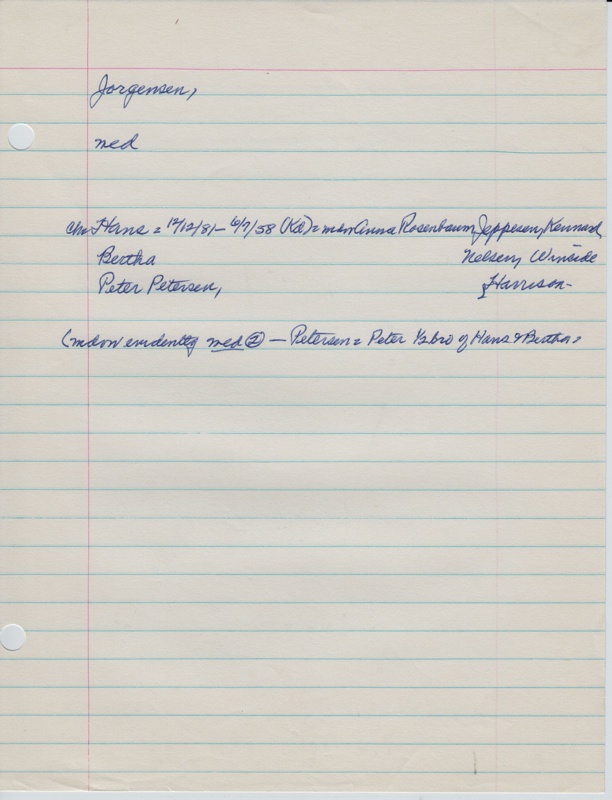 Jorgensen,
med
ch= Hans = 12/12/81- 6/7/58 (Kd) = m Anna Rosenbaum Jeppesen, Kennard,
Bertha Nelsen, Winside
Peter Petersen, Harrison-
(mdow evidently med ② - Petersen = Peter ½ bro of Hans & Bertha.